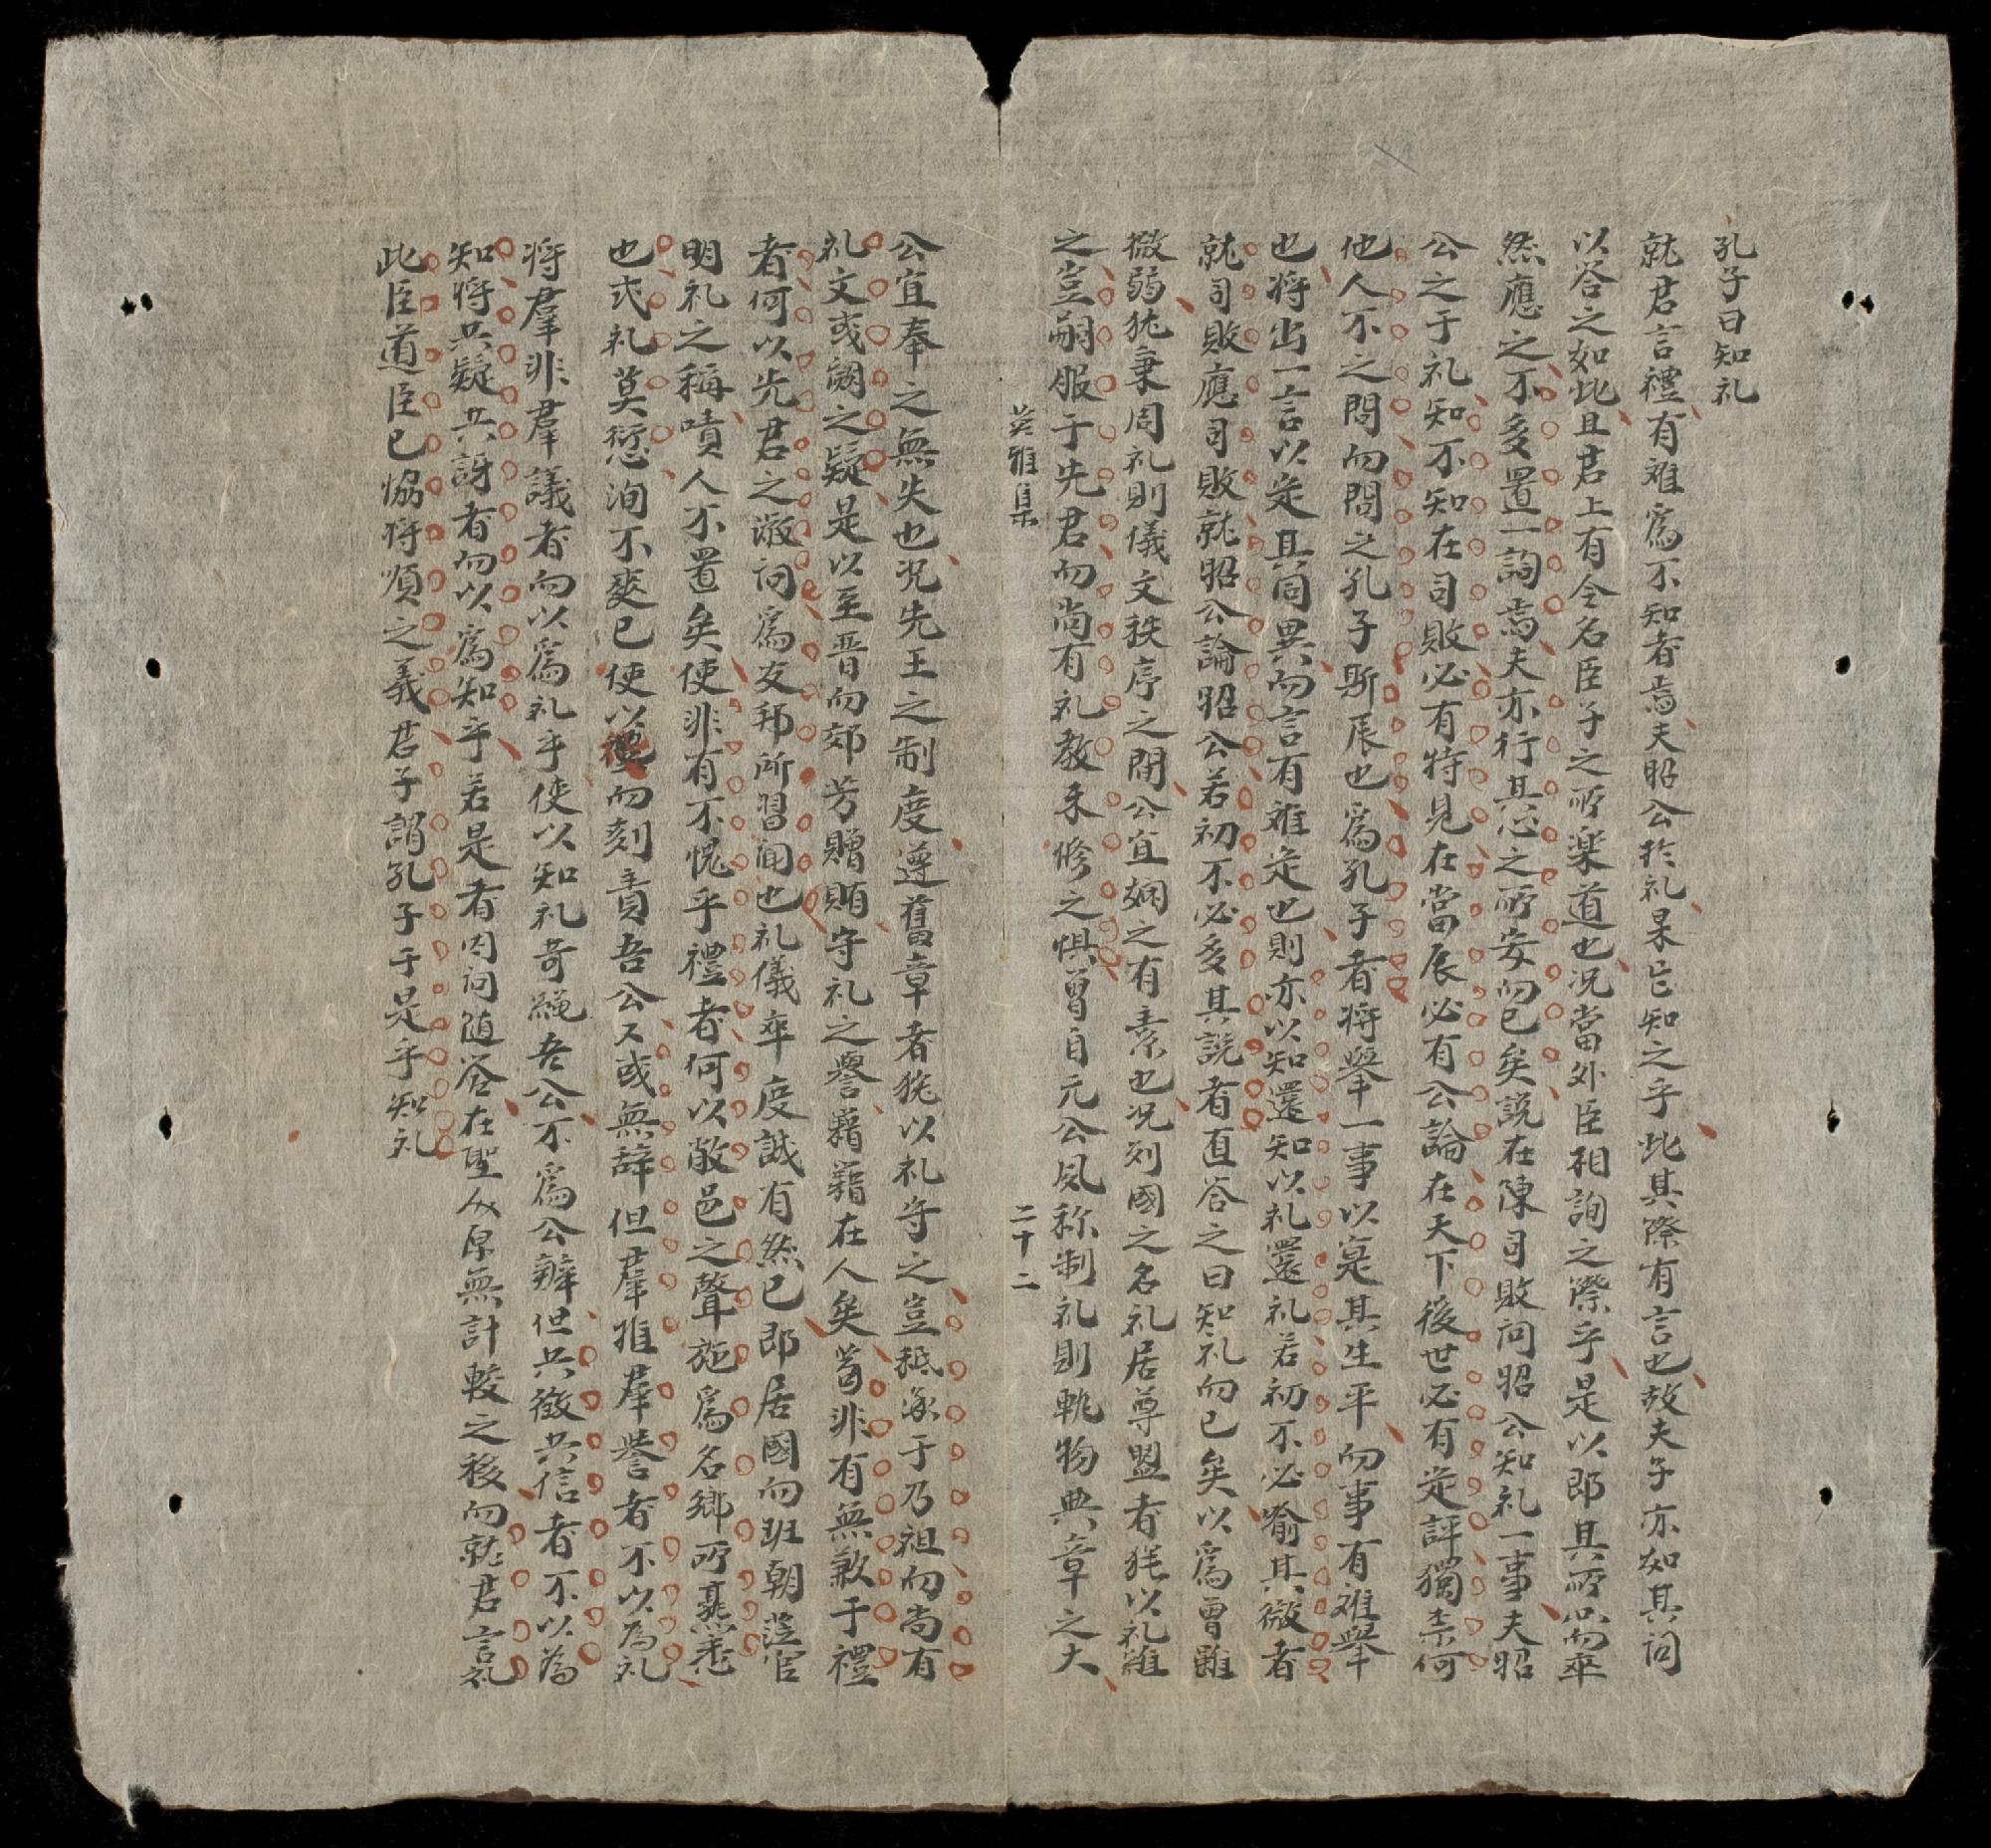 孔子曰知礼
就君言禮有難爲不知者焉夫昭公於礼果它知之乎此其際有言也故夫子亦如其詞
以答之如此且君上有令名臣子之所樂道也况當外臣相詢之際乎是以即其所而率
然應之不多置一詞焉夫亦行其心之所安而已矣説在陳司敗问昭公知礼一事夫昭
公之于礼知不知在司敗必有特見在當辰必有公論在天下後世必有定評獨柰何
他人不之問而問之孔子斯辰也爲孔子者将舉一事以寔其生平而事有难舉
也将出一言以定其同異而言有难定也則亦以知還知以礼還礼若初不必喻其微者
就司敗應司敗就昭公論昭公若初不必多其説者直答之曰知礼而已矣以爲曾雖
微弱犹秉周礼則儀文秩序之間公宜嫻之有素也况列國之名礼居尊盟者犹以礼維
之豈嗣服于先君而尚有礼教未修之惧曾自元公夙称制礼則軌物典章之大
英雅集 二十二
公宜奉之無失也况先王之制度遵舊章者犹以礼守之豈秪承于乃祖而尚有
礼文或闕之疑是以至晋而郊劳贈賄守礼之譽藉藉在人矣茍非有無歉于禮
者何以先君之淑问爲友邦所習闻也礼儀卒度誠有然已即居國而班朝蒞官
明礼之稱嘖人不置矣使非有不愧乎禮者何以敝邑之聲施爲名鄉所熹悉
也式礼莫愆洵不爽已使以禮而刻責吾公又或無辞但羣推羣誉者不以为礼
将羣非羣議者而以爲礼乎使以知礼苛繩吾公不爲公辨但共徵共信者不以為
知将共疑共訝者而以爲知乎若是者因问随答在聖人原無計較之移而就君言礼
此臣道臣已恊将順之義君子謂孔子于是乎知礼